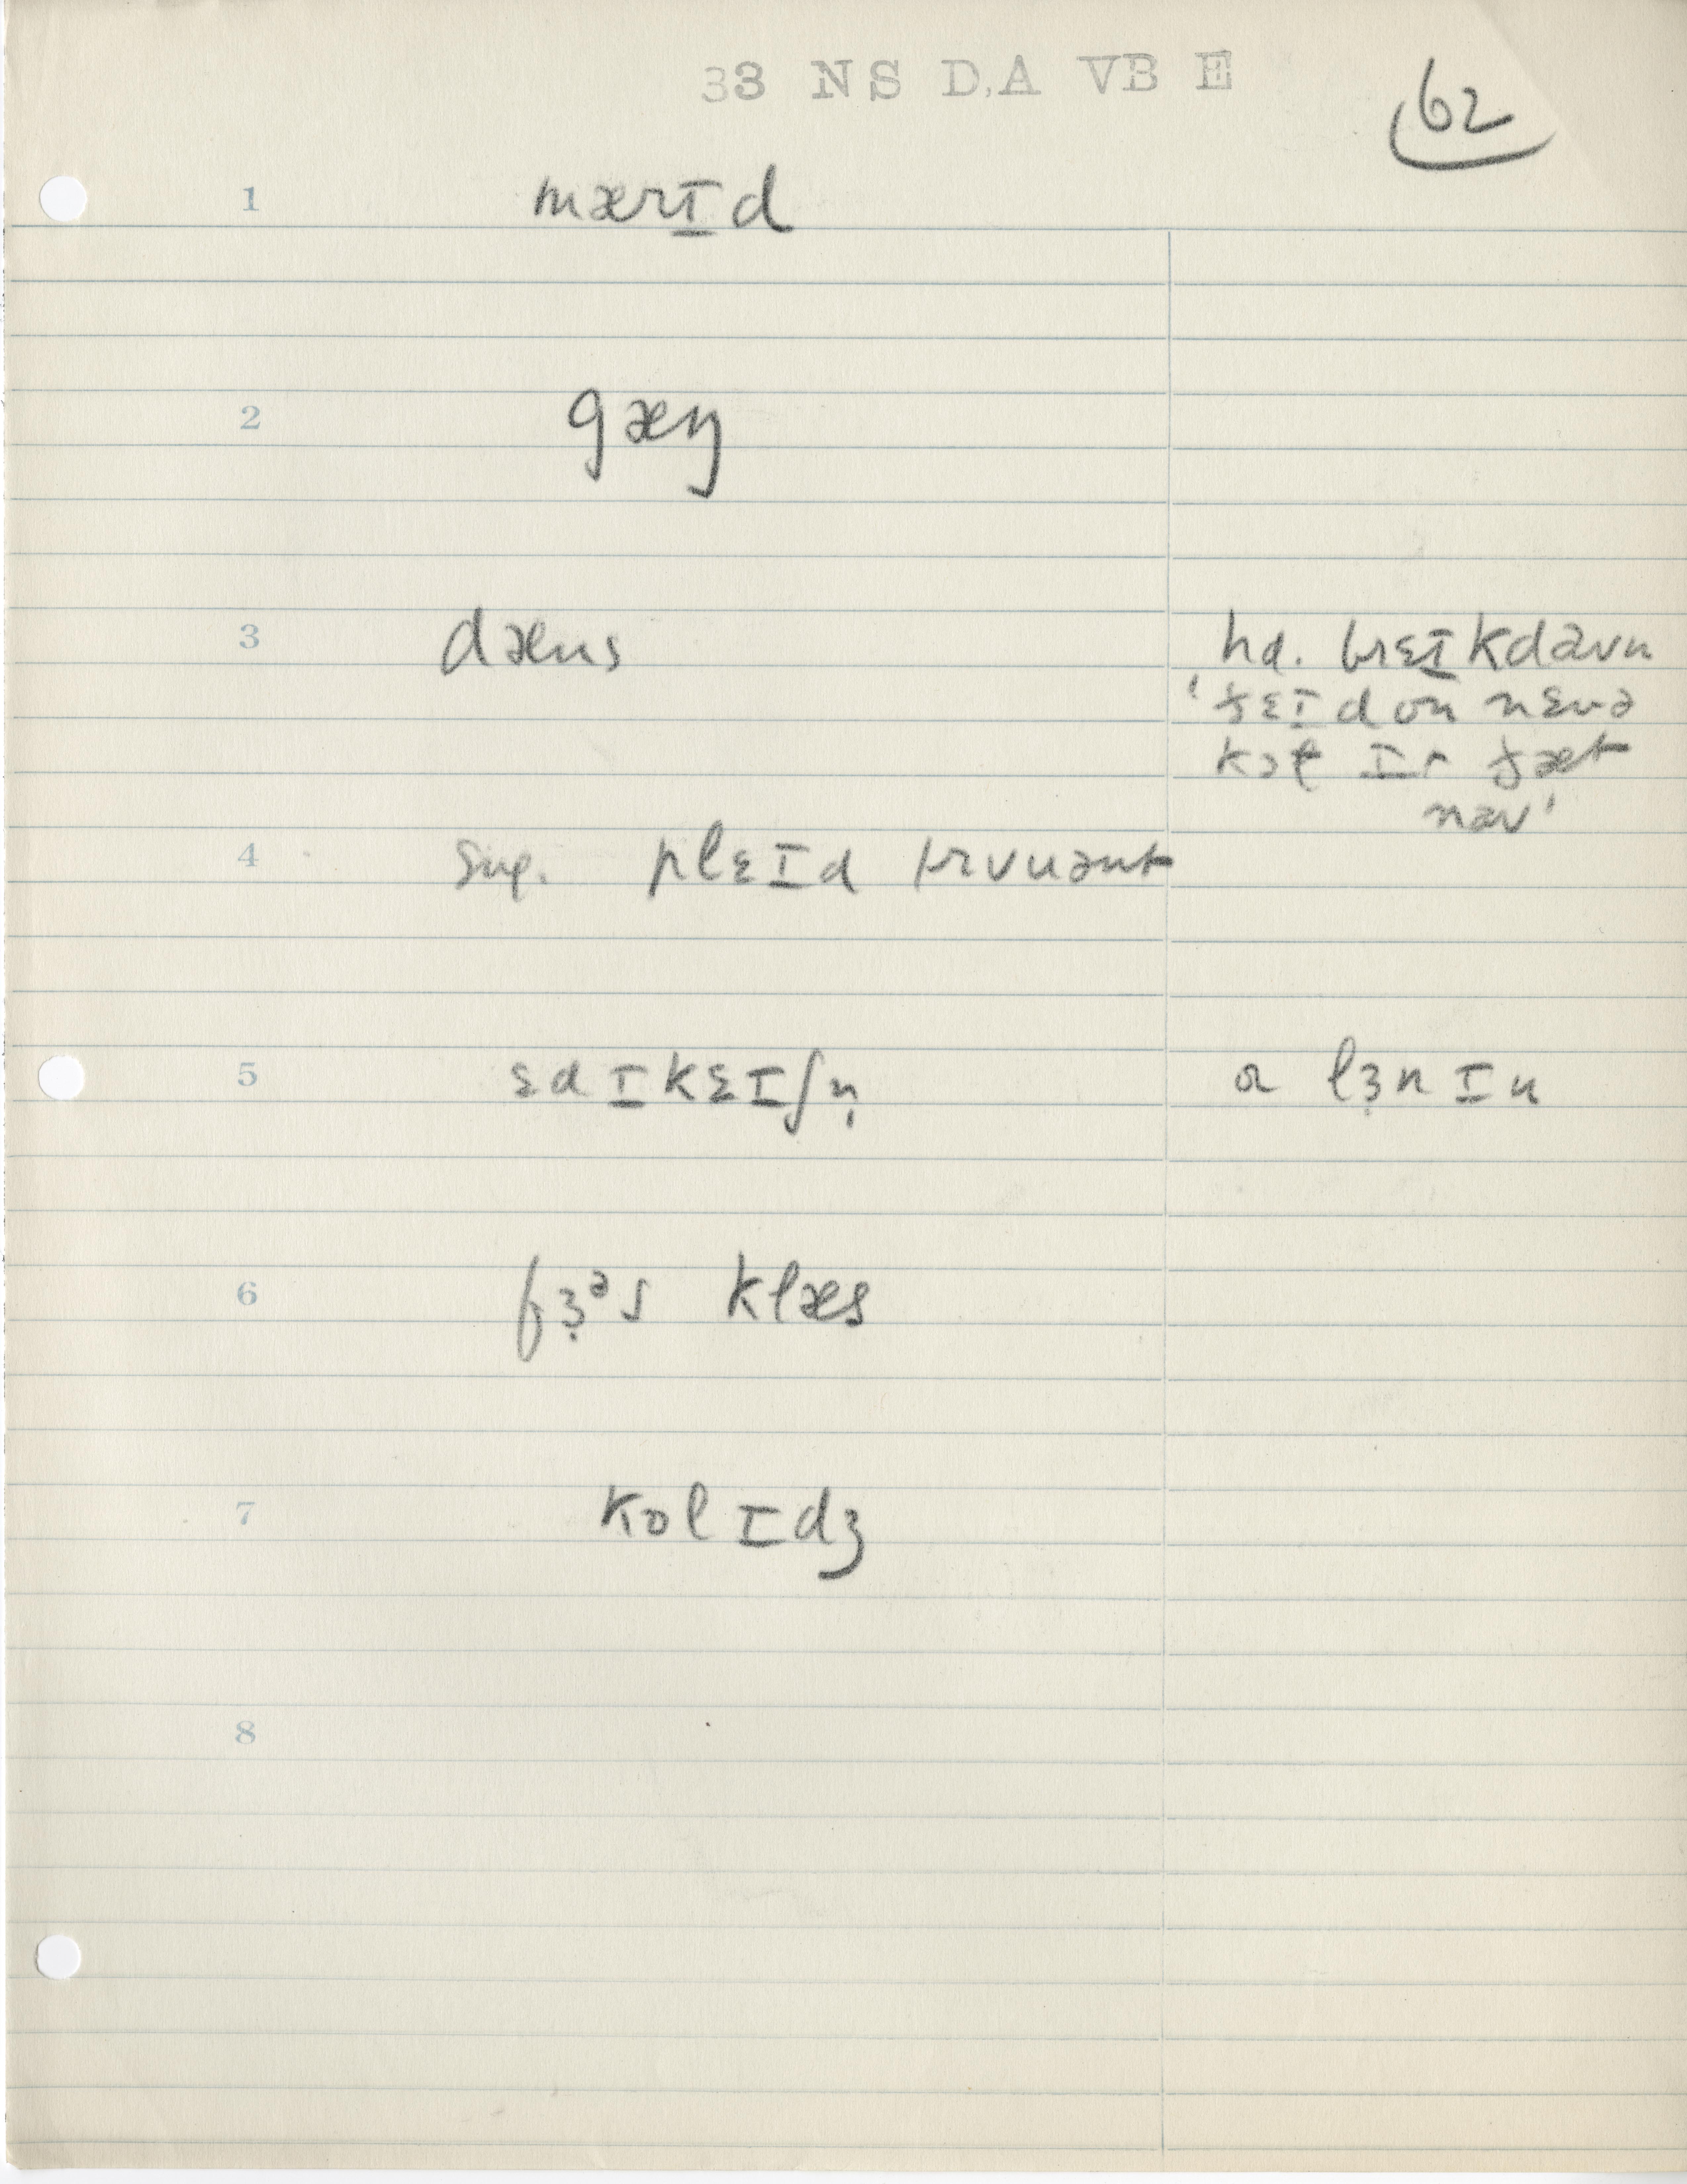 33 NS D,A VB E
62
1 mærɪd
2 gæŋ
3 dæns hd. brɛɪkdaʊn
'ðɛɪ don nɛvə
kɔɫ ɪt ðæt
naʊ'
4 sug. plɛɪd truənt
5 ɛdɪkɛɪʃn̩ a lɜ̣nɪn
6 fɜ̣ᵊs klæs
7 kɒlɪdʒ
8